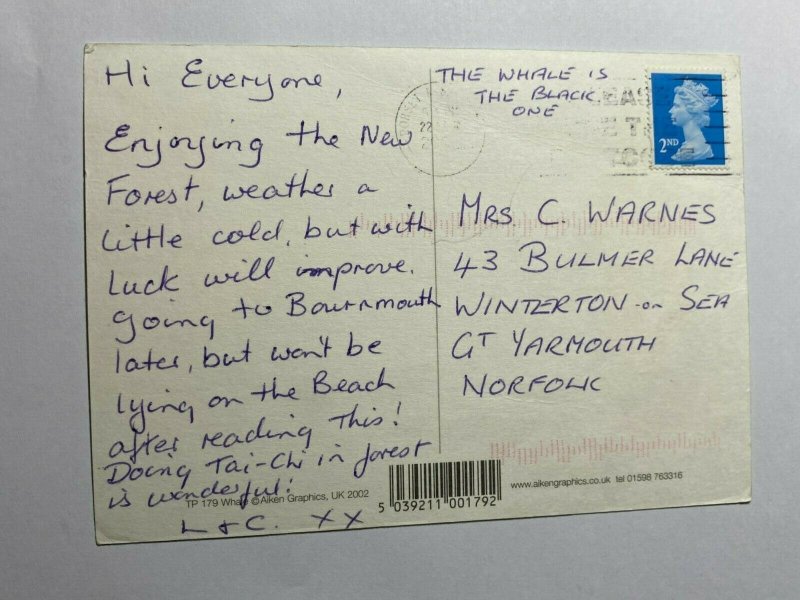 Hi Everyone,
Enjoying the New
Forest, weather a
little cold, but with
luck will improve.
Going to Bournmouth
later, but won't be
lying on the Beach
after reading This!
Doing Tai-Chi in forest
is wonderful!
L & C. XX
TP 179 Whale © Aiken Graphics, UK 2002
THE WHALE IS
THE BLACK
ONE
2ND
MRS C. WARNES
43 BULMER LANE
WINTERTON-on SEA
GT YARMOUTH
NORFOLK
5 039211 001792
www.aikengraphics.co.uk tel 01598 763316